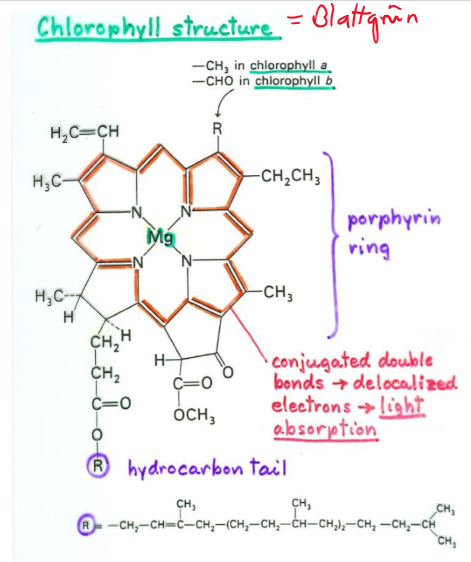 Chlorophyll structure = Blattgrün
—CH₃ in chlorophyll a
—CHO in chlorophyll b
H₂C=CH
R
H₃C
CH₂CH₃
N
N
Mg
porphyrin
ring
N
N
H₃C
CH₃
H
H
CH₂
H
O
CH₂
C=O
conjugated double
bonds → delocalized
electrons → light
absorption
C=O
OCH₃
O
R hydrocarbon tail
CH₃ CH₃ CH₃
R = —CH₂—CH=C—CH₂—(CH₂—CH₂—CH—CH₂)₂—CH₂—CH₂—CH
CH₃